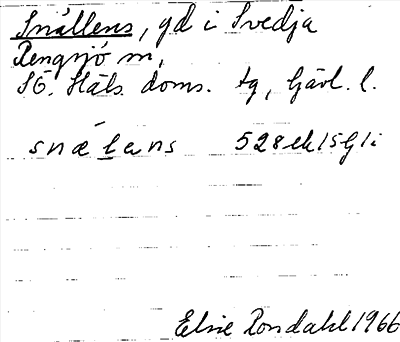 Snällens, gd i Svedja
Rengsjö sn,
SÖ. Häls. doms. tg, Gävl. l.
snǽlans 528 ek 15 G 1 i
Elsie Rondahl 1966